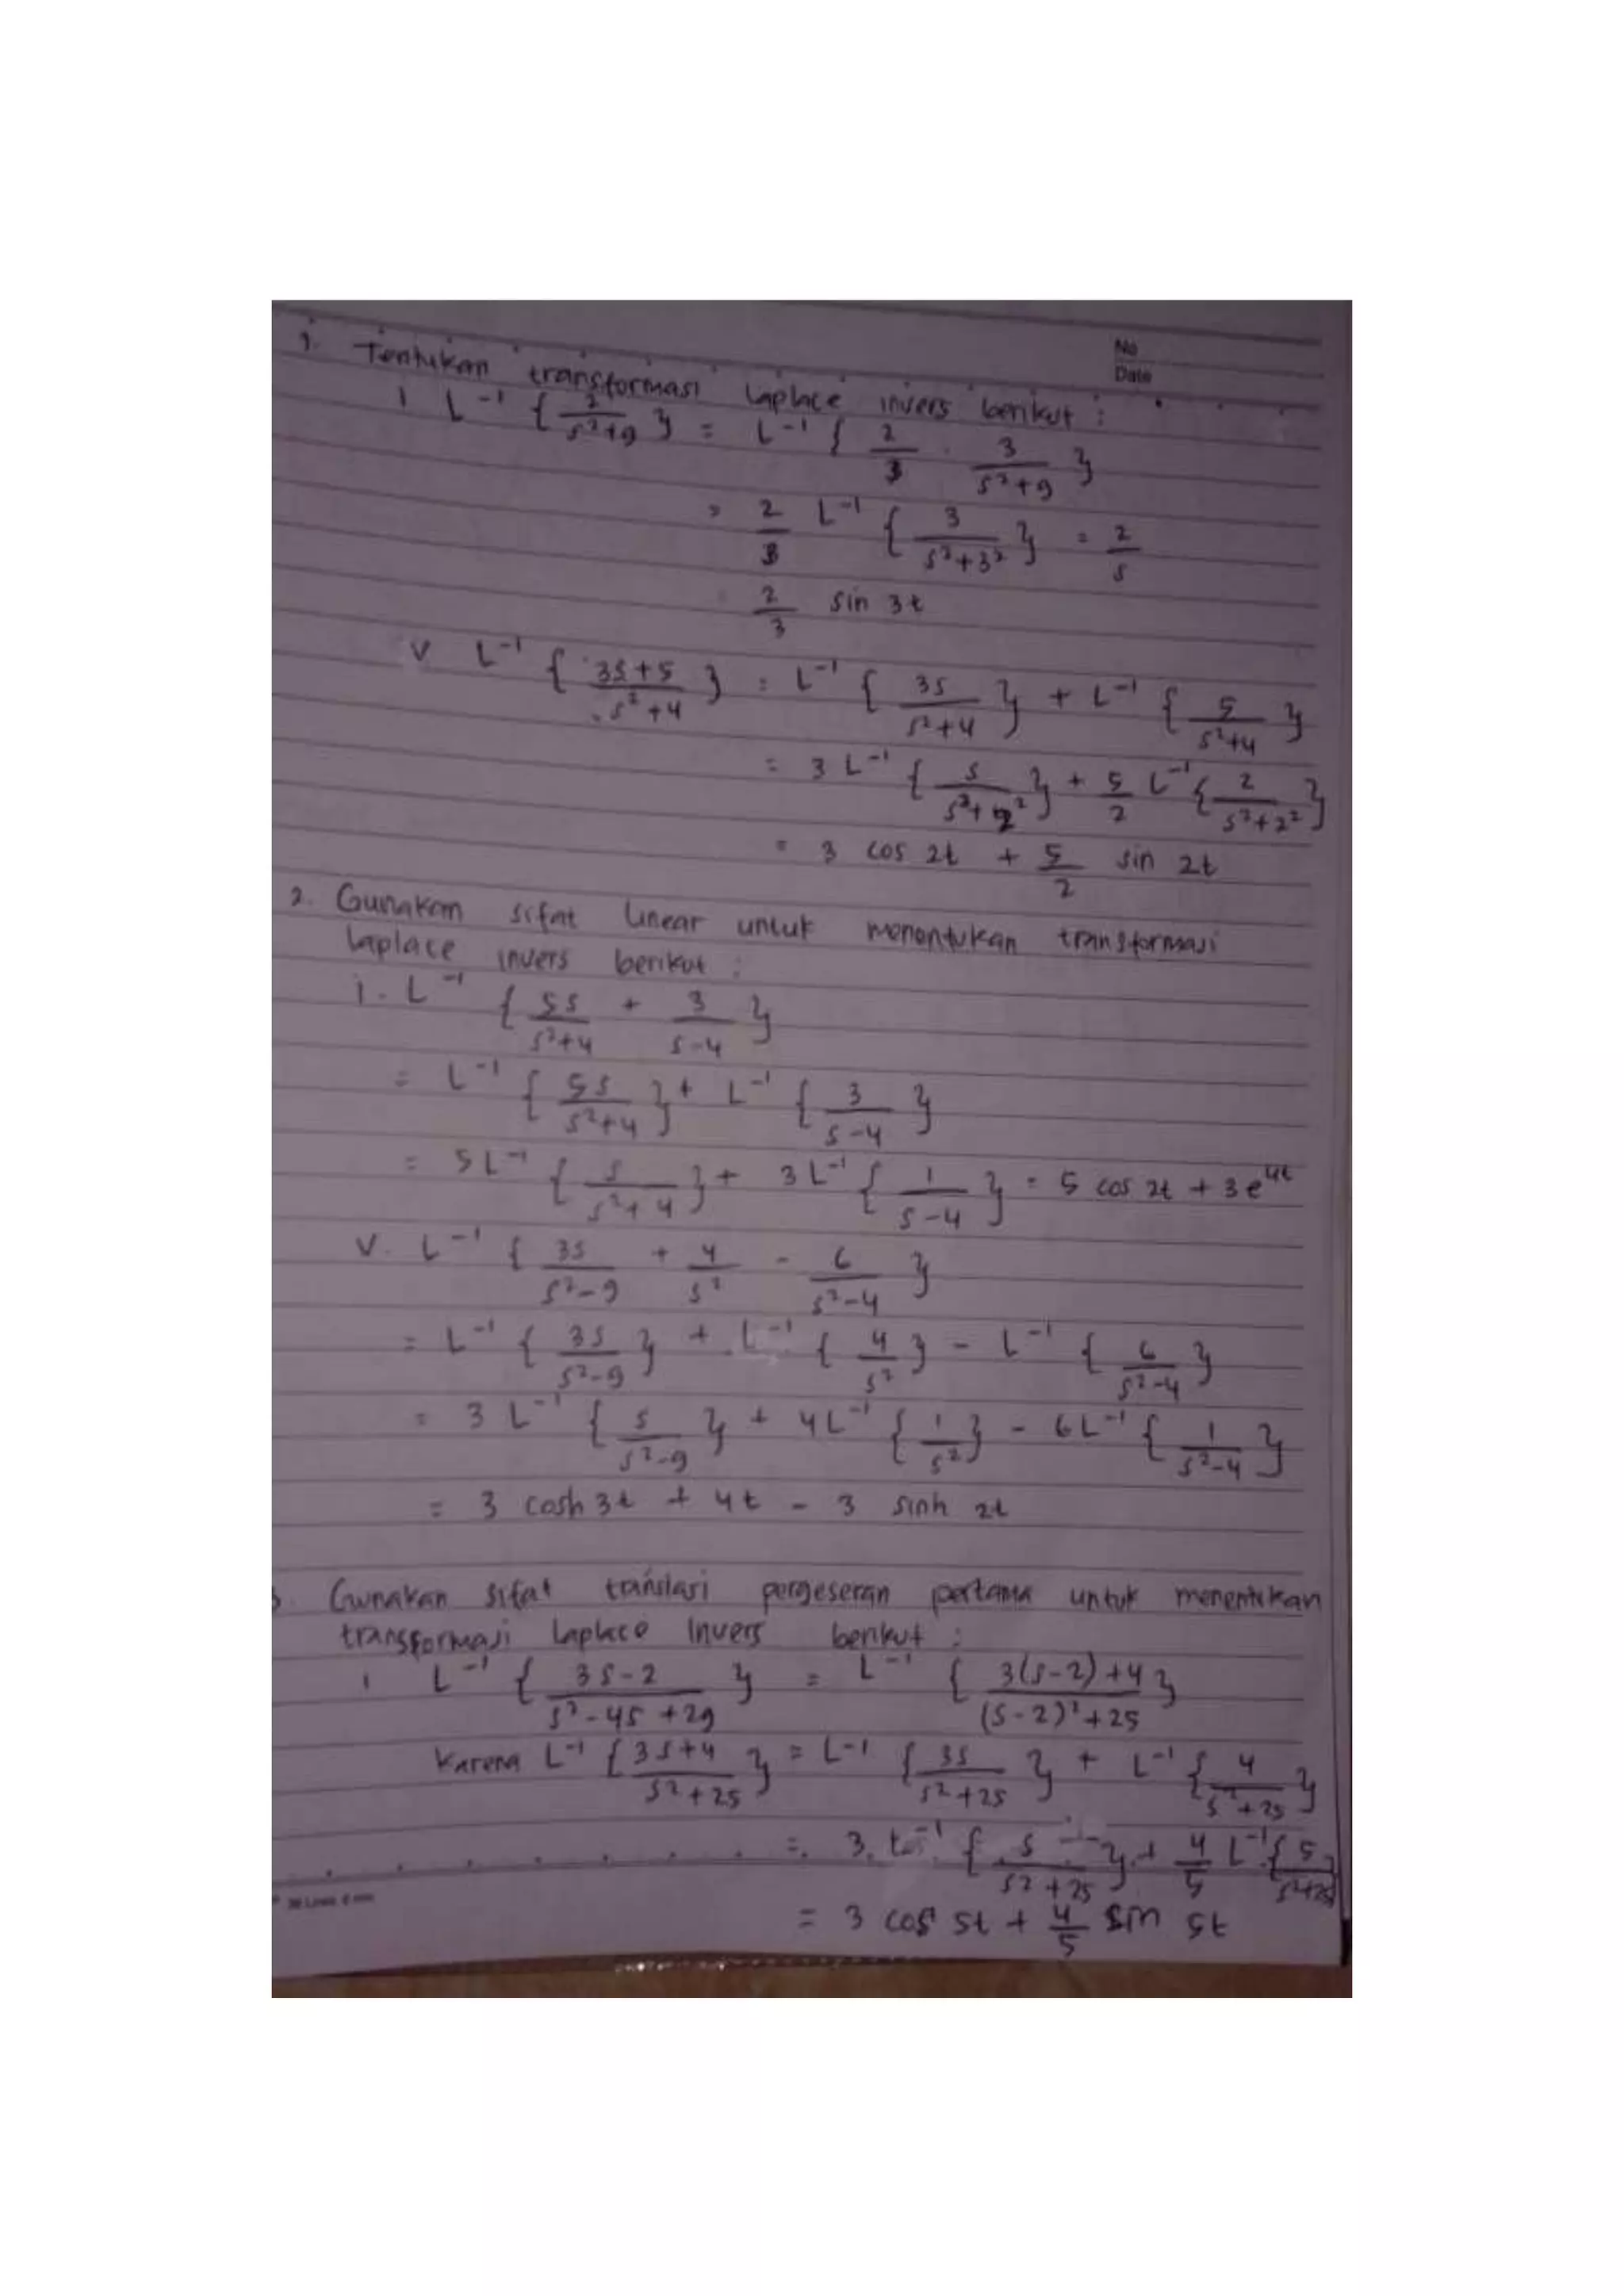 No
Date
1. Tentukan transformasi Laplace invers berikut :
i L⁻¹ { 2/(s²+9) } = L⁻¹ { 2/3 . 3/(s²+9) }
= 2/3 L⁻¹ { 3/(s²+3²) } = 2/s
2/3 sin 3t
v L⁻¹ { (3s+5)/(s²+4) } = L⁻¹ { 3s/(s²+4) } + L⁻¹ { 5/(s²+4) }
= 3 L⁻¹ { s/(s²+2²) } + 5/2 L⁻¹ { 2/(s²+2²) }
= 3 cos 2t + 5/2 sin 2t
2. Gunakan sifat linear untuk menentukan transformasi
Laplace invers berikut :
i. L⁻¹ { 5s/(s²+4) + 3/(s-4) }
= L⁻¹ { 5s/(s²+4) } + L⁻¹ { 3/(s-4) }
= 5L⁻¹ { s/(s²+4) } + 3L⁻¹ { 1/(s-4) } = 5 cos 2t + 3e⁴ᵗ
v. L⁻¹ { 3s/(s²-9) + 4/s² - 6/(s²-4) }
= L⁻¹ { 3s/(s²-9) } + L⁻¹ { 4/s² } - L⁻¹ { 6/(s²-4) }
= 3 L⁻¹ { s/(s²-9) } + 4L⁻¹ { 1/s² } - 6L⁻¹ { 1/(s²-4) }
= 3 cosh 3t + 4t - 3 sinh 2t
Gunakan sifat translasi pergeseran pertama untuk menentukan
transformasi Laplace Invers berikut :
i L⁻¹ { (3s-2)/(s²-4s+29) } = L⁻¹ { (3(s-2)+4)/((s-2)²+25) }
Karena L⁻¹ { (3s+4)/(s²+25) } = L⁻¹ { 3s/(s²+25) } + L⁻¹ { 4/(s²+25) }
= 3. L⁻¹ { s/(s²+25) } + 4/5 L⁻¹ { 5/(s²+25) }
= 3 cos 5t + 4/5 sin 5t